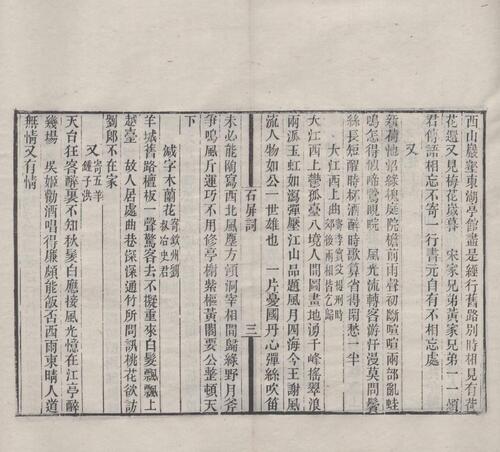 西山巖壑東湖亭館盡是經行舊路別時相見有荷
花還又見梅花歲暮　宋家兄弟黃家兄弟一一煩
君傳語相忘不寄一行書元自有不相忘處
又
新荷池沼綠槐庭院檐前雨聲初斷喧喧兩部亂蛙
鳴怎得似啼鶯睍睆　風光流轉客游汗漫莫問鬢
絲長短醒時杯酒醉時歌算省得閑愁一半
大江西上曲 寄李實父提刑時郊後兩相皆歸
大江西上鬱孤臺八境人間圖畫地湧千峰搖翠浪
兩派玉虹如瀉彈壓江山品題風月四海今王謝風
流人物如公一世雄也　一片憂國丹心彈絲吹笛
石屏詞　三
未必能陶寫西北風塵方澒洞宰相閒歸綠野月斧
爭鳴風斤運巧不用修亭榭紫樞黃閣要公整頓天
下
減字木蘭花 寄欽州劉叔治史君
羊城舊路檀板一聲驚客去不擬重來白髮飄飄上
越臺　故人居處曲巷深深通竹所問訊桃花欲訪
劉郎不在家
又 寄五羊鍾子洪
天台狂客醉裏不知秋鬢白應接風光憶在江亭醉
幾場　吳姬勸酒唱得廉頗能飯否西雨東晴人道
無情又有情